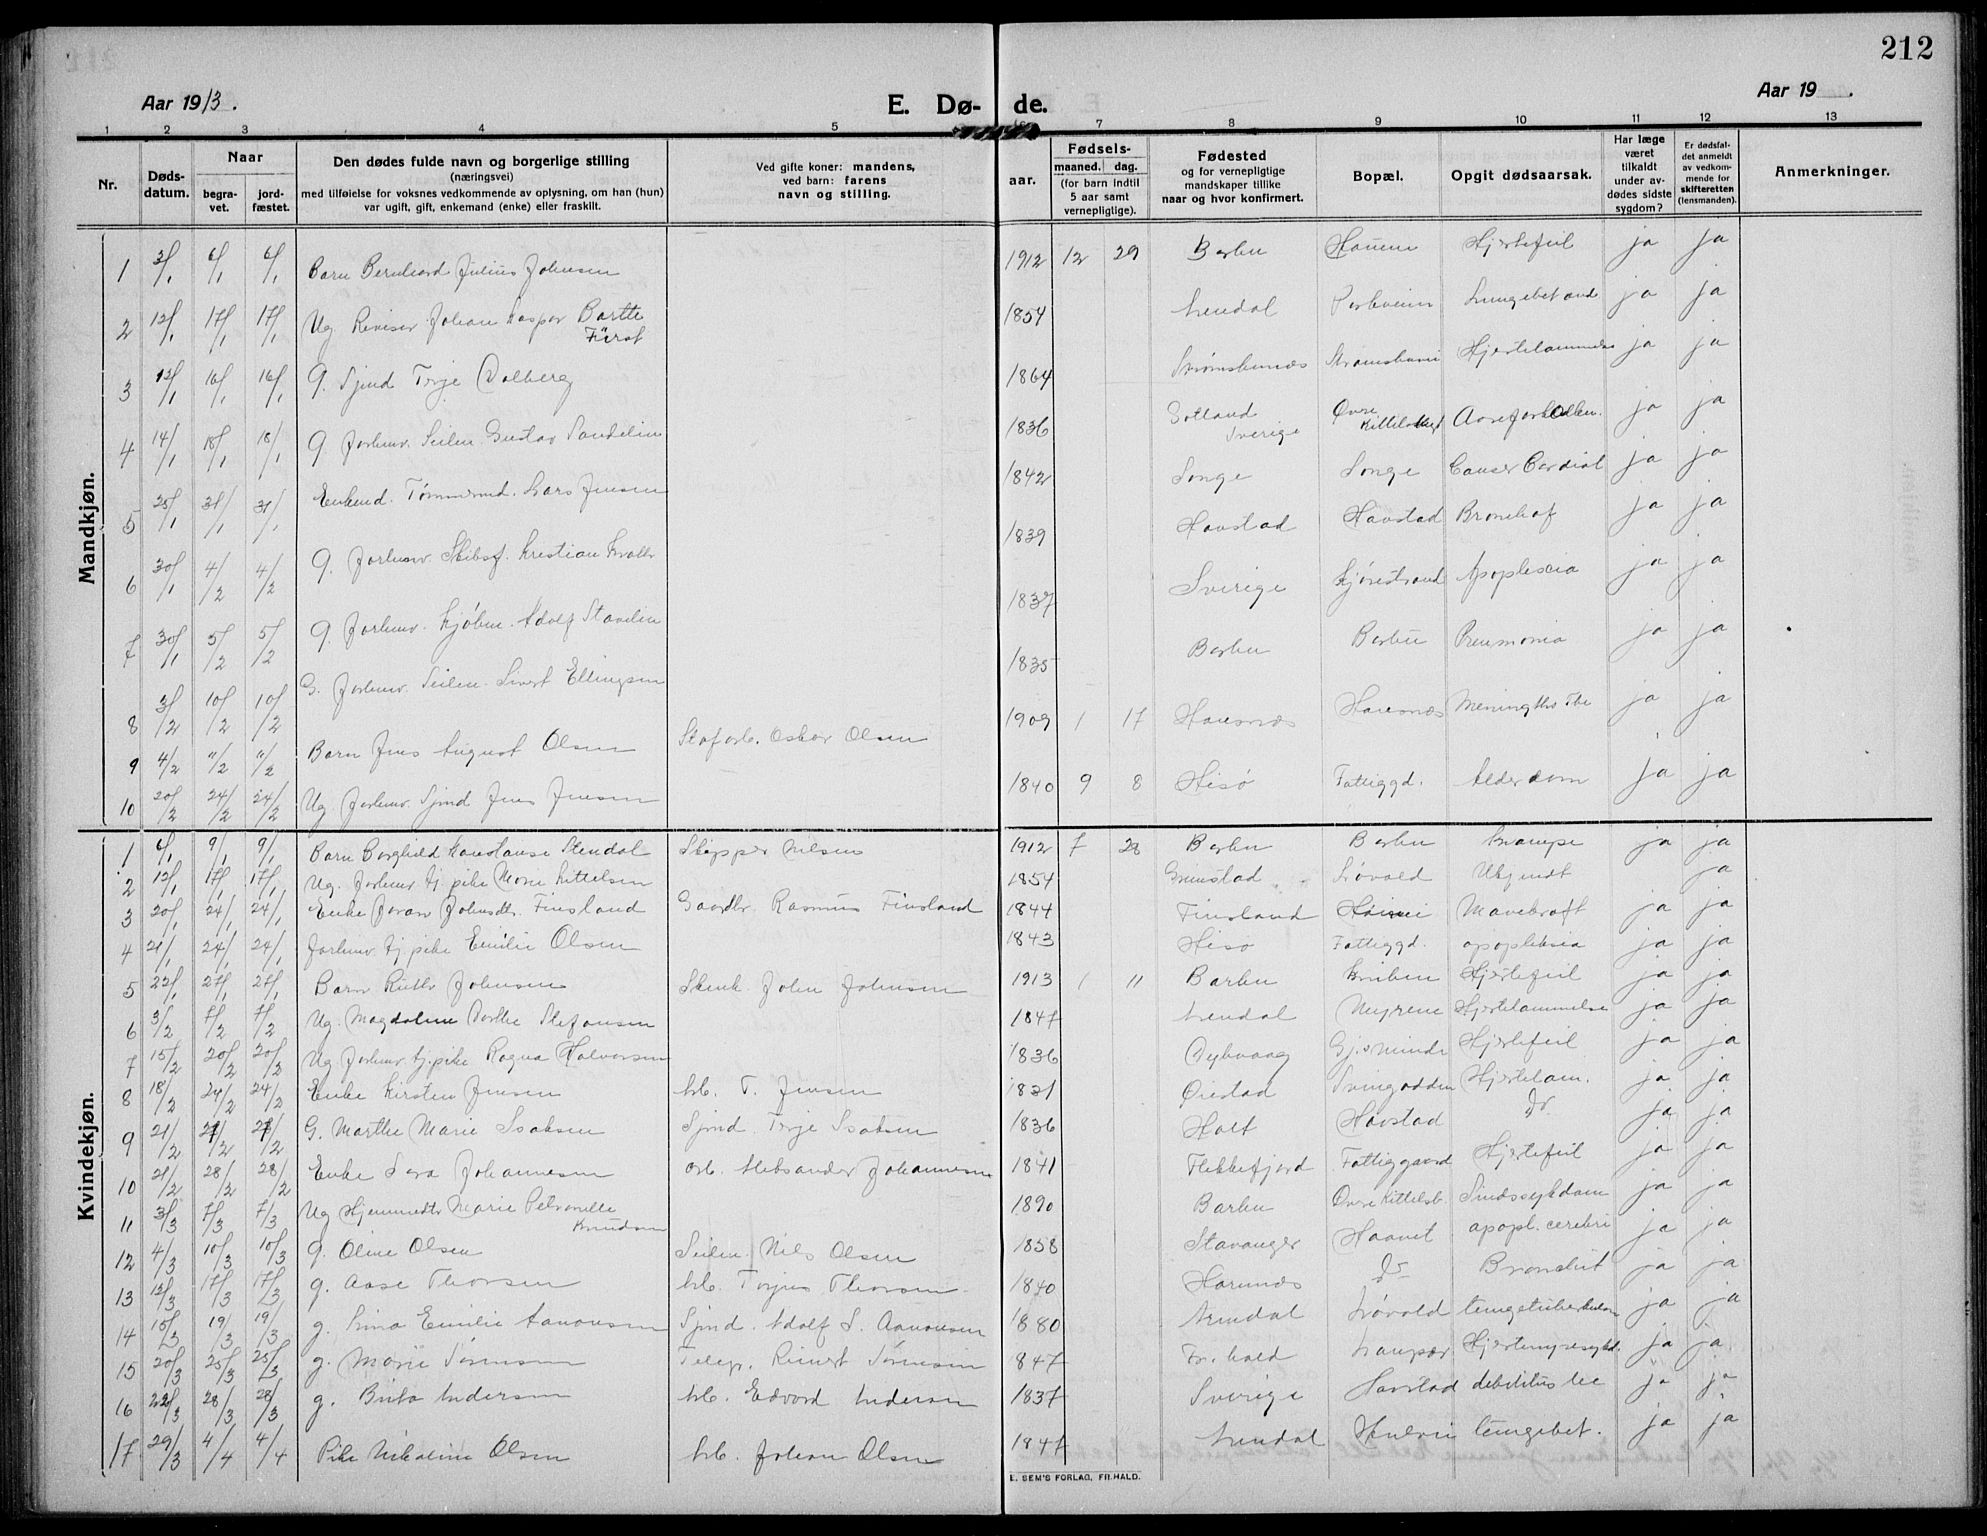 212
Aar 1913.
E. Dø- de.
Aar 19 .
1 2 3 4 5 7 8 9 10 11 12 13
Nr. Dødsdatum. Naar begravet. jordfæstet.
Den dødes fulde navn og borgerlige stilling
(næringsvei)
med tilføielse for voksnes vedkommende av oplysning, om han (hun)
var ugift, gift, enkemand (enke) eller fraskilt.
Ved gifte koner: mandens,
ved barn: farens
navn og stilling.
Fødsels-
aar. maaned. dag.
(for barn indtil
5 aar samt
vernepligtige).
Fødested
og for vernepligtige
mandskaper tillike
naar og hvor konfirmert.
Bopæl.
Opgit dødsaarsak.
Har læge
været
tilkaldt
under av-
dødes sidste
sygdom?
Er dødsfal-
det anmeldt
av vedkom-
mende for
skifteretten
(lensmanden).
Anmerkninger.
Mandkjøn.
1 3/1 6/1 6/1 Barn Bernhard Julius Johnsen 1912 12 29 Barbu Hjertefeil ja ja
2 12/1 17/1 17/1 Ug. Revisor Johan Kasper Barttе 1854 Arendal Parkveien Lungebetænd ja ja
Fürst
3 12/1 16/1 16/1 G. Sjmd Terje Dalberg 1864 Hjertelammelse ja ja
4 14/1 18/1 18/1 G. Forhenv. Seilm. Gustav Sandelin 1836 Gotland Sverige Øvre Aareforkalkn. ja ja
5 25/1 31/1 31/1 Enkemd. Tømmermd. Lars Jensen 1842 Songe Songe ja ja
6 30/1 4/2 4/2 G. Forhenv. Skibsf. Kristian 1839 Havstad Havstad ja ja
7 30/1 5/2 5/2 G. Forhenv. Kjøbm. Adolf 1837 Sverige Apoplexia ja ja
8 3/2 10/2 10/2 G. Forhenv. Seilm. Sivert Ellingsen 1835 Barbu Barbu Pneumonia ja ja
9 4/2 11/2 11/2 Barn Jens August Olsen Oskar Olsen 1909 1 17 ja ja
10 20/2 24/2 24/2 Ug. Forhenv. Sjmd Jens Jensen 1840 9 8 Hisø Fattiggd. Alderdom ja ja
Kvindekjøn.
1 6/1 9/1 9/1 Barn Borghild Konstanse Stendal Skipper Nilsen 1912 7 28 Barbu Barbu Krampe ja ja
2 12/1 17/1 17/1 Ug. Forhenv. tj.pike Marie Kittelsen 1854 Grimstad Løvold Ukjendt ja
3 20/1 24/1 24/1 Enke Joran Johnsdtr. Finsland Gaardbr. Rasmus Finsland 1844 Finsland Mavekræft ja ja
4 21/1 24/1 24/1 Forhenv. tj.pike Emilie Olsen 1843 Hisø Fattiggd. apopleksia ja ja
5 22/1 27/1 27/1 Barn Ruth Johnsen John Johnsen 1913 1 11 Barbu Hjertefeil ja ja
6 3/2 7/2 7/2 Ug. Magdalene Dorthe Stefansen 1847 Arendal Myrene Hjertelammelse ja ja
7 15/2 20/2 20/2 Ug. Forhenv. tj.pike Ragna Halvorsen 1836 Dybvaag Hjertefeil ja ja
8 18/2 24/2 24/2 Enke Kirsten Jensen T. Jensen 1831 Øiestad Svingodden Hjertelam. ja ja
9 21/2 27/2 27/2 G. Marthe Marie Isaksen Sjmd. Terje Isaksen 1836 Holt Havstad Do ja ja
10 21/2 28/2 28/2 Enke Sara Johannesen Arb. Aleksander Johannesen 1841 Flekkefjord Fattiggaard Hjertefeil ja ja
11 3/3 7/3 7/3 Ug Hjemmedtr Marie Petronelle 1890 Barbu Øvre Kittelsb. Sindssykdom ja ja
Knudsen
12 4/3 10/3 10/3 g. Oline Olsen Seilm. Nils Olsen 1858 Stavanger Haavet apopl. cerebri ja ja
13 12/3 17/3 17/3 g. Aase Thorsen Arb. Torjus Thorsen 1840 Do Bronchit ja ja
14 15/3 19/3 19/3 g. Lina Emilie Aanonsen Sjmd. Adolf S. Aanonsen 1880 Arendal Løvold ja ja
15 20/3 25/3 25/3 g. Marie Sørensen Reinert Sørensen 1847 Fr. hald ja ja
16 22/3 28/3 28/3 g. Britta Andersen Arb. Edvard Andersen 1837 Sverige Havstad ja ja
17 29/3 4/4 4/4 Pike Nikoline Olsen Arb. Johan Olsen 1847 Arendal Lungebet. ja ja
E. SEM'S FORLAG, FR.HALD.